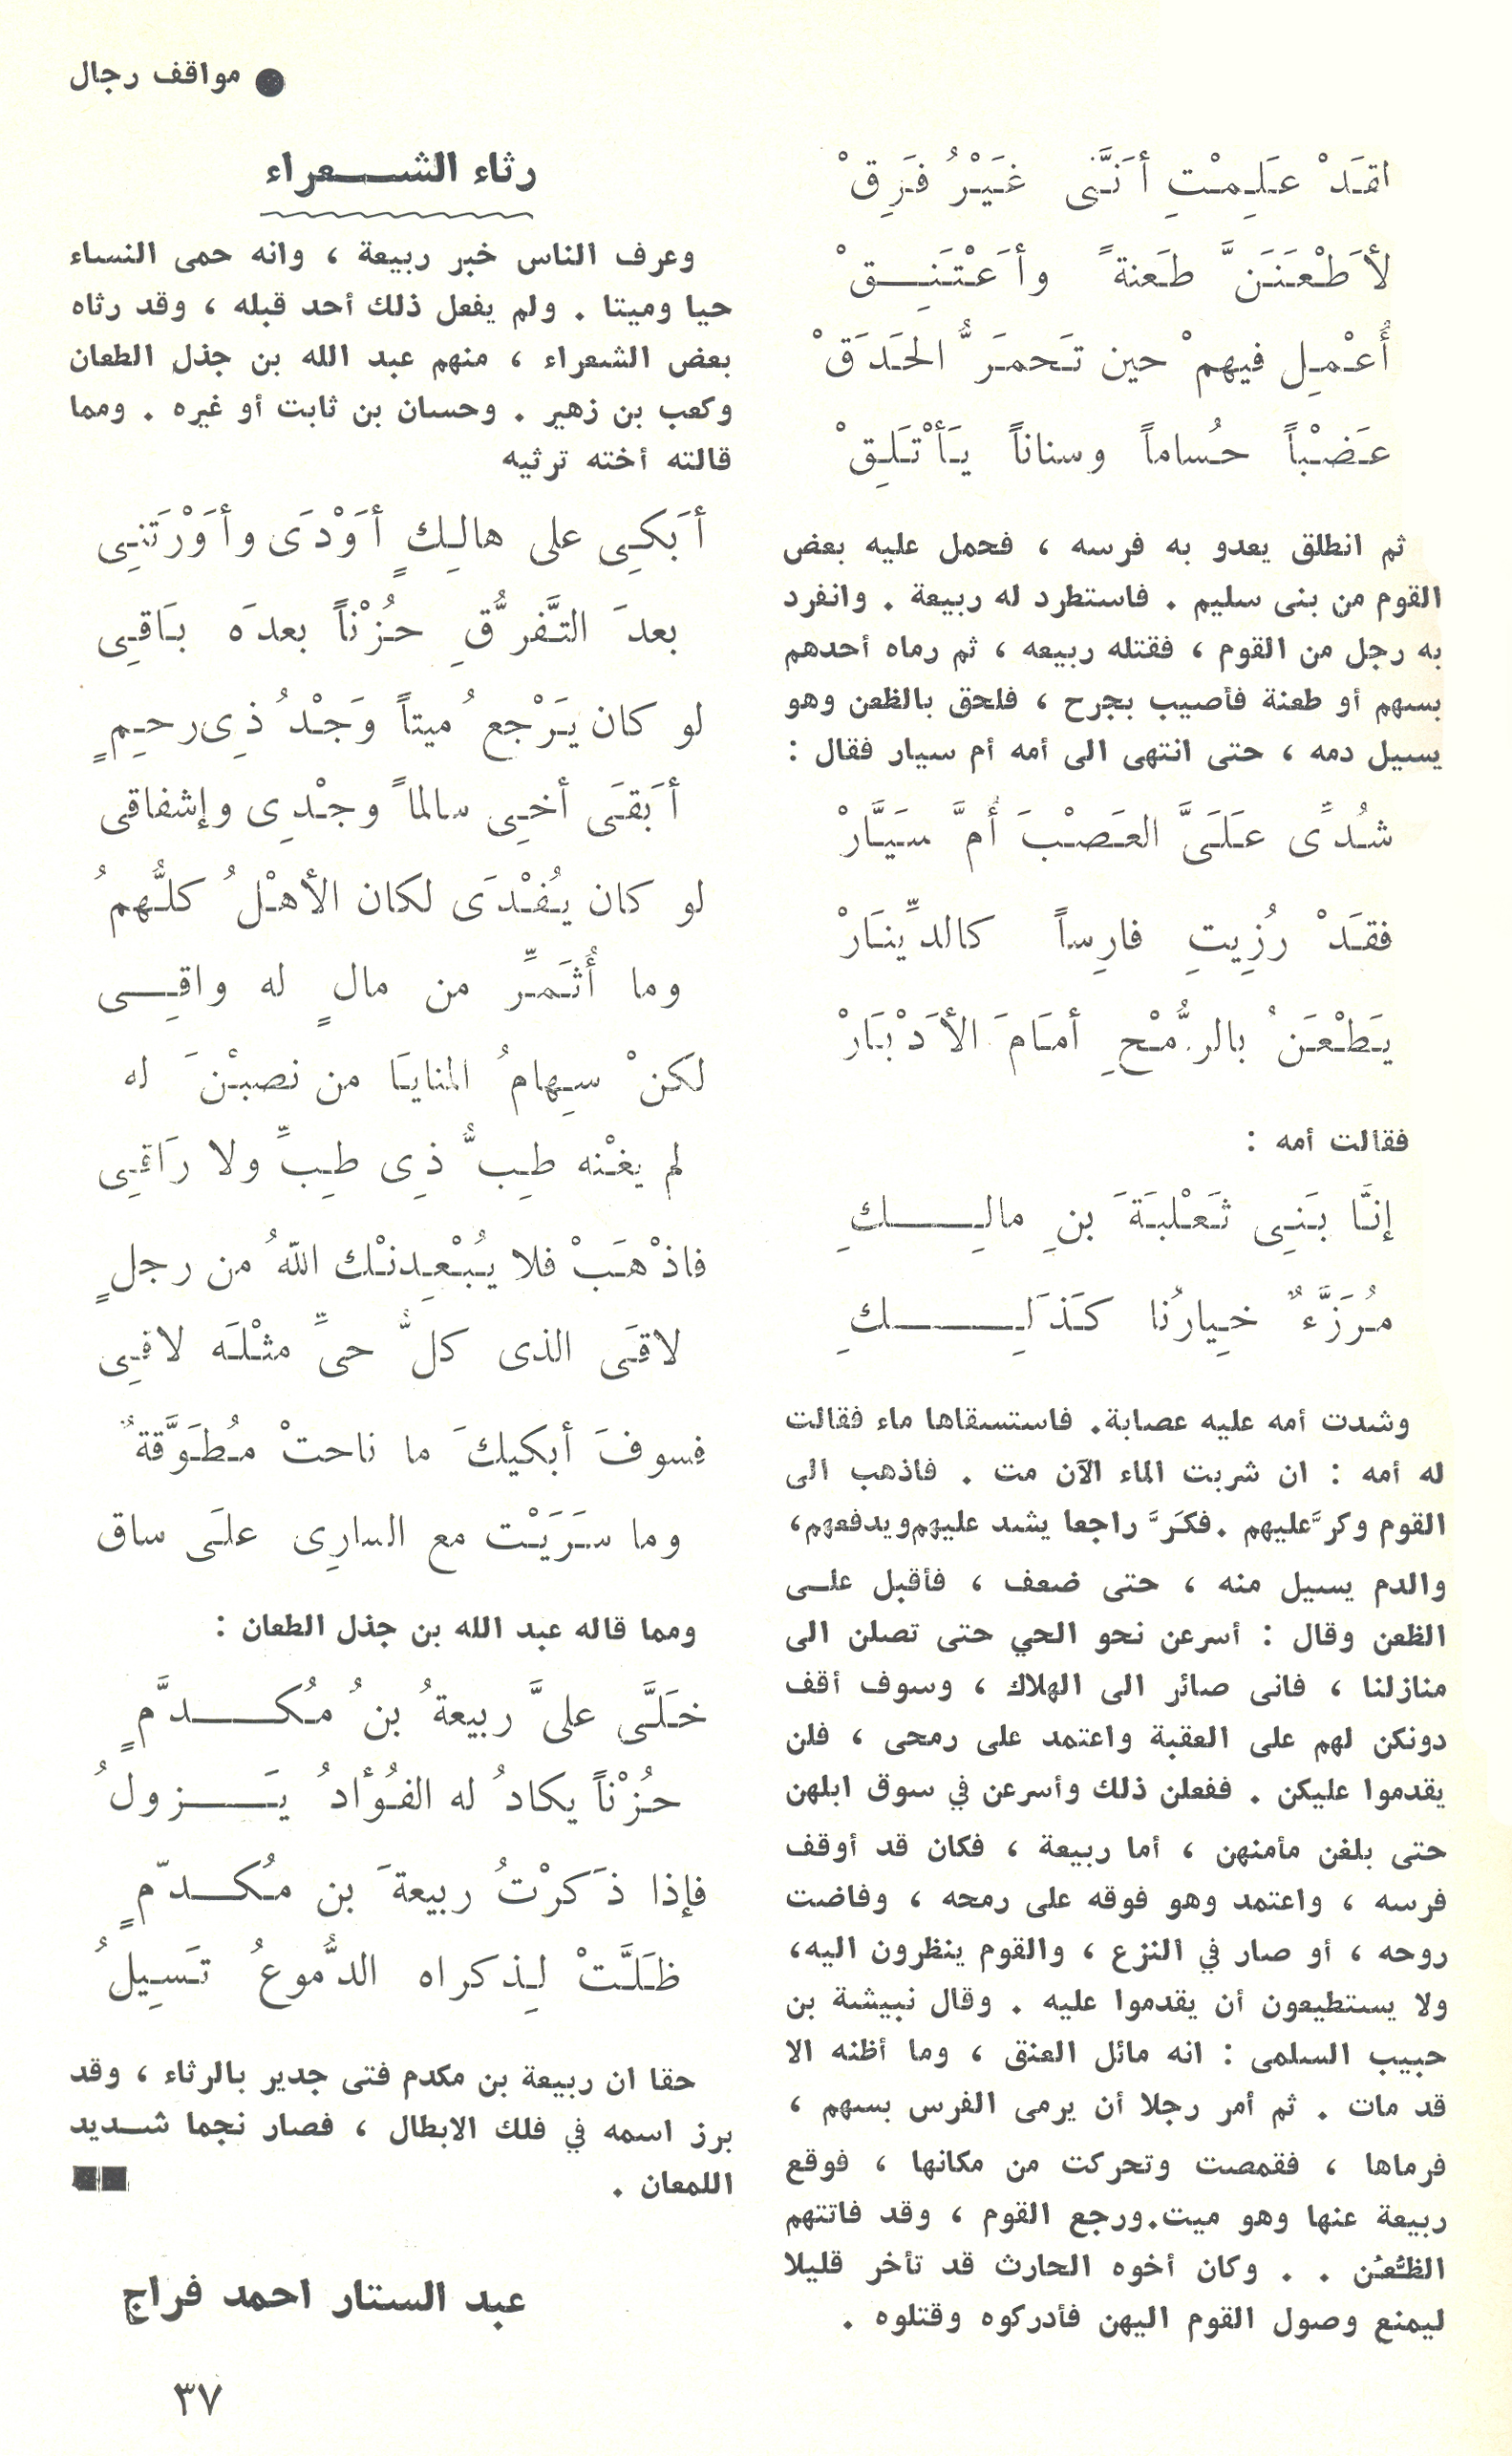 ● مواقف رجال
لقَدْ عَلِمْتِ أَنَّنى غَيْرُ فَرِقْ
لأَطْعَنَنَّ طَعنةً وأَعْتَنِقْ
أُعْمِل فيهمْ حين تَحمَرُّ الحَدَقْ
عَضْباً حُساماً وسناناً يَأْتَلِقْ
ثم انطلق يعدو به فرسه ، فحمل عليه بعض
القوم من بنى سليم . فاستطرد له ربيعة . وانفرد
به رجل من القوم ، فقتله ربيعه ، ثم رماه أحدهم
بسهم أو طعنة فأصيب بجرح ، فلحق بالظعن وهو
يسيل دمه ، حتى انتهى الى أمه أم سيار فقال :
شُدِّى عَلَىَّ العَصْبَ أُمَّ سَيَّارْ
فقَدْ رُزِيتِ فارِساً كالدِّينَارْ
يَطْعَنُ بالرُّمْحِ أمَامَ الأَدْبَارْ
فقالت أمه :
إنَّا بَنِى ثَعْلبَةَ بنِ مالِكِ
مُرَزَّءٌ خِيارُنا كَذَلِكِ
وشدت أمه عليه عصابة. فاستسقاها ماء فقالت
له أمه : ان شربت الماء الآن مت . فاذهب الى
القوم وكرَّ عليهم .فكَرَّ راجعا يشد عليهم ويدفعهم،
والدم يسيل منه ، حتى ضعف ، فأقبل على
الظعن وقال : أسرعن نحو الحي حتى تصلن الى
منازلنا ، فانى صائر الى الهلاك ، وسوف أقف
دونكن لهم على العقبة واعتمد على رمحى ، فلن
يقدموا عليكن . ففعلن ذلك وأسرعن في سوق ابلهن
حتى بلغن مأمنهن ، أما ربيعة ، فكان قد أوقف
فرسه ، واعتمد وهو فوقه على رمحه ، وفاضت
روحه ، أو صار في النزع ، والقوم ينظرون اليه،
ولا يستطيعون أن يقدموا عليه . وقال نبيشة بن
حبيب السلمى : انه مائل العنق ، وما أظنه الا
قد مات . ثم أمر رجلا أن يرمى الفرس بسهم ،
فرماها ، فقمصت وتحركت من مكانها ، فوقع
ربيعة عنها وهو ميت.ورجع القوم ، وقد فاتتهم
الظُّعُن . . وكان أخوه الحارث قد تأخر قليلا
ليمنع وصول القوم اليهن فأدركوه وقتلوه .
رثاء الشعراء
وعرف الناس خبر ربيعة ، وانه حمى النساء
حيا وميتا . ولم يفعل ذلك أحد قبله ، وقد رثاه
بعض الشعراء ، منهم عبد الله بن جذل الطعان
وكعب بن زهير . وحسان بن ثابت أو غيره . ومما
قالته أخته ترثيه
أَبكِى على هالِكٍ أَوْدَى وأَوْرَثَنِى
بعدَ التَّفرُّقِ حُزْناً بعدَه بَاقِى
لو كان يَرْجعُ ميتاً وَجْدُ ذِى رحِمٍ
أَبقَى أخِى سالماً وجْدِى وإشفاقى
لو كان يُفْدَى لكان الأهْلُ كلُّهمُ
وما أُثَمِّر من مالٍ له واقِى
لكنْ سِهامُ المنايَا من نصبْنَ له
لم يغْنه طِبُّ ذِى طِبٍّ ولا رَاقِى
فاذْهَبْ فلا يُبْعِدنْك اللهُ من رجلٍ
لاقَى الذى كلُّ حىٍّ مثْلَه لاقِى
فسوفَ أبكيكَ ما ناحتْ مُطَوَّقةٌ
وما سَرَيْت مع السارِى علَى ساق
ومما قاله عبد الله بن جذل الطعان :
خَلَّى علىَّ ربيعةُ بنُ مُكدَّمٍ
حُزْناً يكادُ له الفُؤادُ يَزولُ
فإذا ذَكرْتُ ربيعةَ بن مُكدّمٍ
ظَلَّتْ لِذكراه الدُّموعُ تَسِيلُ
حقا ان ربيعة بن مكدم فتى جدير بالرثاء ، وقد
برز اسمه في فلك الابطال ، فصار نجما شديد
اللمعان . ■■
عبد الستار احمد فراج
٣٧